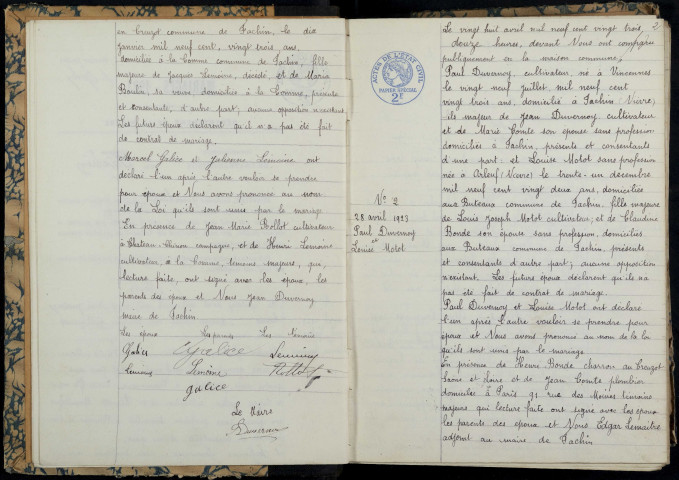 en Cruzot commune de Fachin, le dix
janvier mil neuf cent, vingt trois ans,
domiciliée à la Comme commune de Fachin, fille
majeure de Jacques Lemoine, décédé, et de Marie
Boulin, sa veuve domiciliée à la Comme, présente
et consentante, d'autre part, aucune opposition n'existant
Les futurs époux déclarent qu'il n'a pas de fait
de contrat de mariage.
Marcel Galice et Lemoine ont
déclaré l'un après l'autre vouloir se prendre
pour époux et Nous avons prononcé au nom
de la Loi qu'ils sont unis par le mariage
En présence de Jean Marie Rollot cultivateur
à Château-Chinon campagne, et de Henri Lemoine
cultivateur, à la Comme, témoins majeurs, qui,
lecture faite, ont signé avec les époux, les
parents des époux et Nous Jean Duvernoy
maire de Fachin
Les époux Les parents Les témoins
Galice Galice Lemoine
Lemoine Lemoine Rollot
galice
Le Maire
Duvernoy
2
Le vingt huit avril mil neuf cent vingt trois,
douze heures, devant Nous ont comparu
publiquement en la maison commune,
Paul Duvernoy, cultivateur, né à Vincennes
le vingt neuf juillet mil neuf cent
vingt trois ans, domicilié à Fachin (Nièvre)
fils majeur de Jean Duvernoy, cultivateur
et de Marie Comte son épouse sans profession
domiciliés à Fachin, présents et consentants
d'une part: et Louise Motot sans profession
née à Arleuf (Nièvre) le trente-un décembre
mil neuf cent vingt deux ans, domiciliée
aux Buteaux commune de Fachin, fille majeure
de Louis Joseph Motot cultivateur, et de Claudine
Bonde son épouse sans profession, domiciliés
aux Buteaux commune de Fachin, présents
et consentants d'autre part; aucune opposition
n'existant. Les futurs époux déclarent qu'ils n'a
pas été fait de contrat de mariage.
Paul Duvernoy et Louise Motot ont déclaré
l'un après l'autre vouloir se prendre pour
époux et Nous avons prononcé au nom de la loi
qu'ils sont unis par le mariage
En présence de Henri Bonde charron au Creuzot
Saône et Loire et de Jean Comte, plombier
domiciliés à Paris 91 rue des Moines témoins
majeurs qui lecture faite ont signé avec les époux
les parents des époux et Nous Edgar Lemaitre
adjoint au maire de Fachin
ACTES DE L'ÉTAT CIVIL
PAPIER SPÉCIAL
2F
N° 2
28 avril 1923
Paul Duvernoy
et
Louise Motot